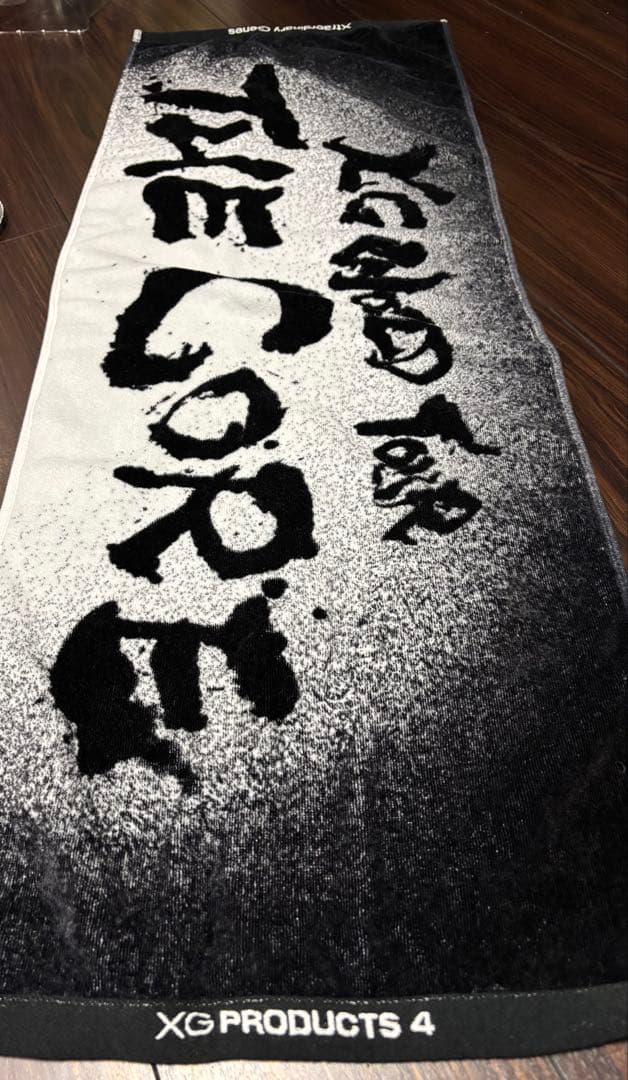 Xtraordinary Genes
XG WORLD TOUR
THE CORE
XG PRODUCTS 4